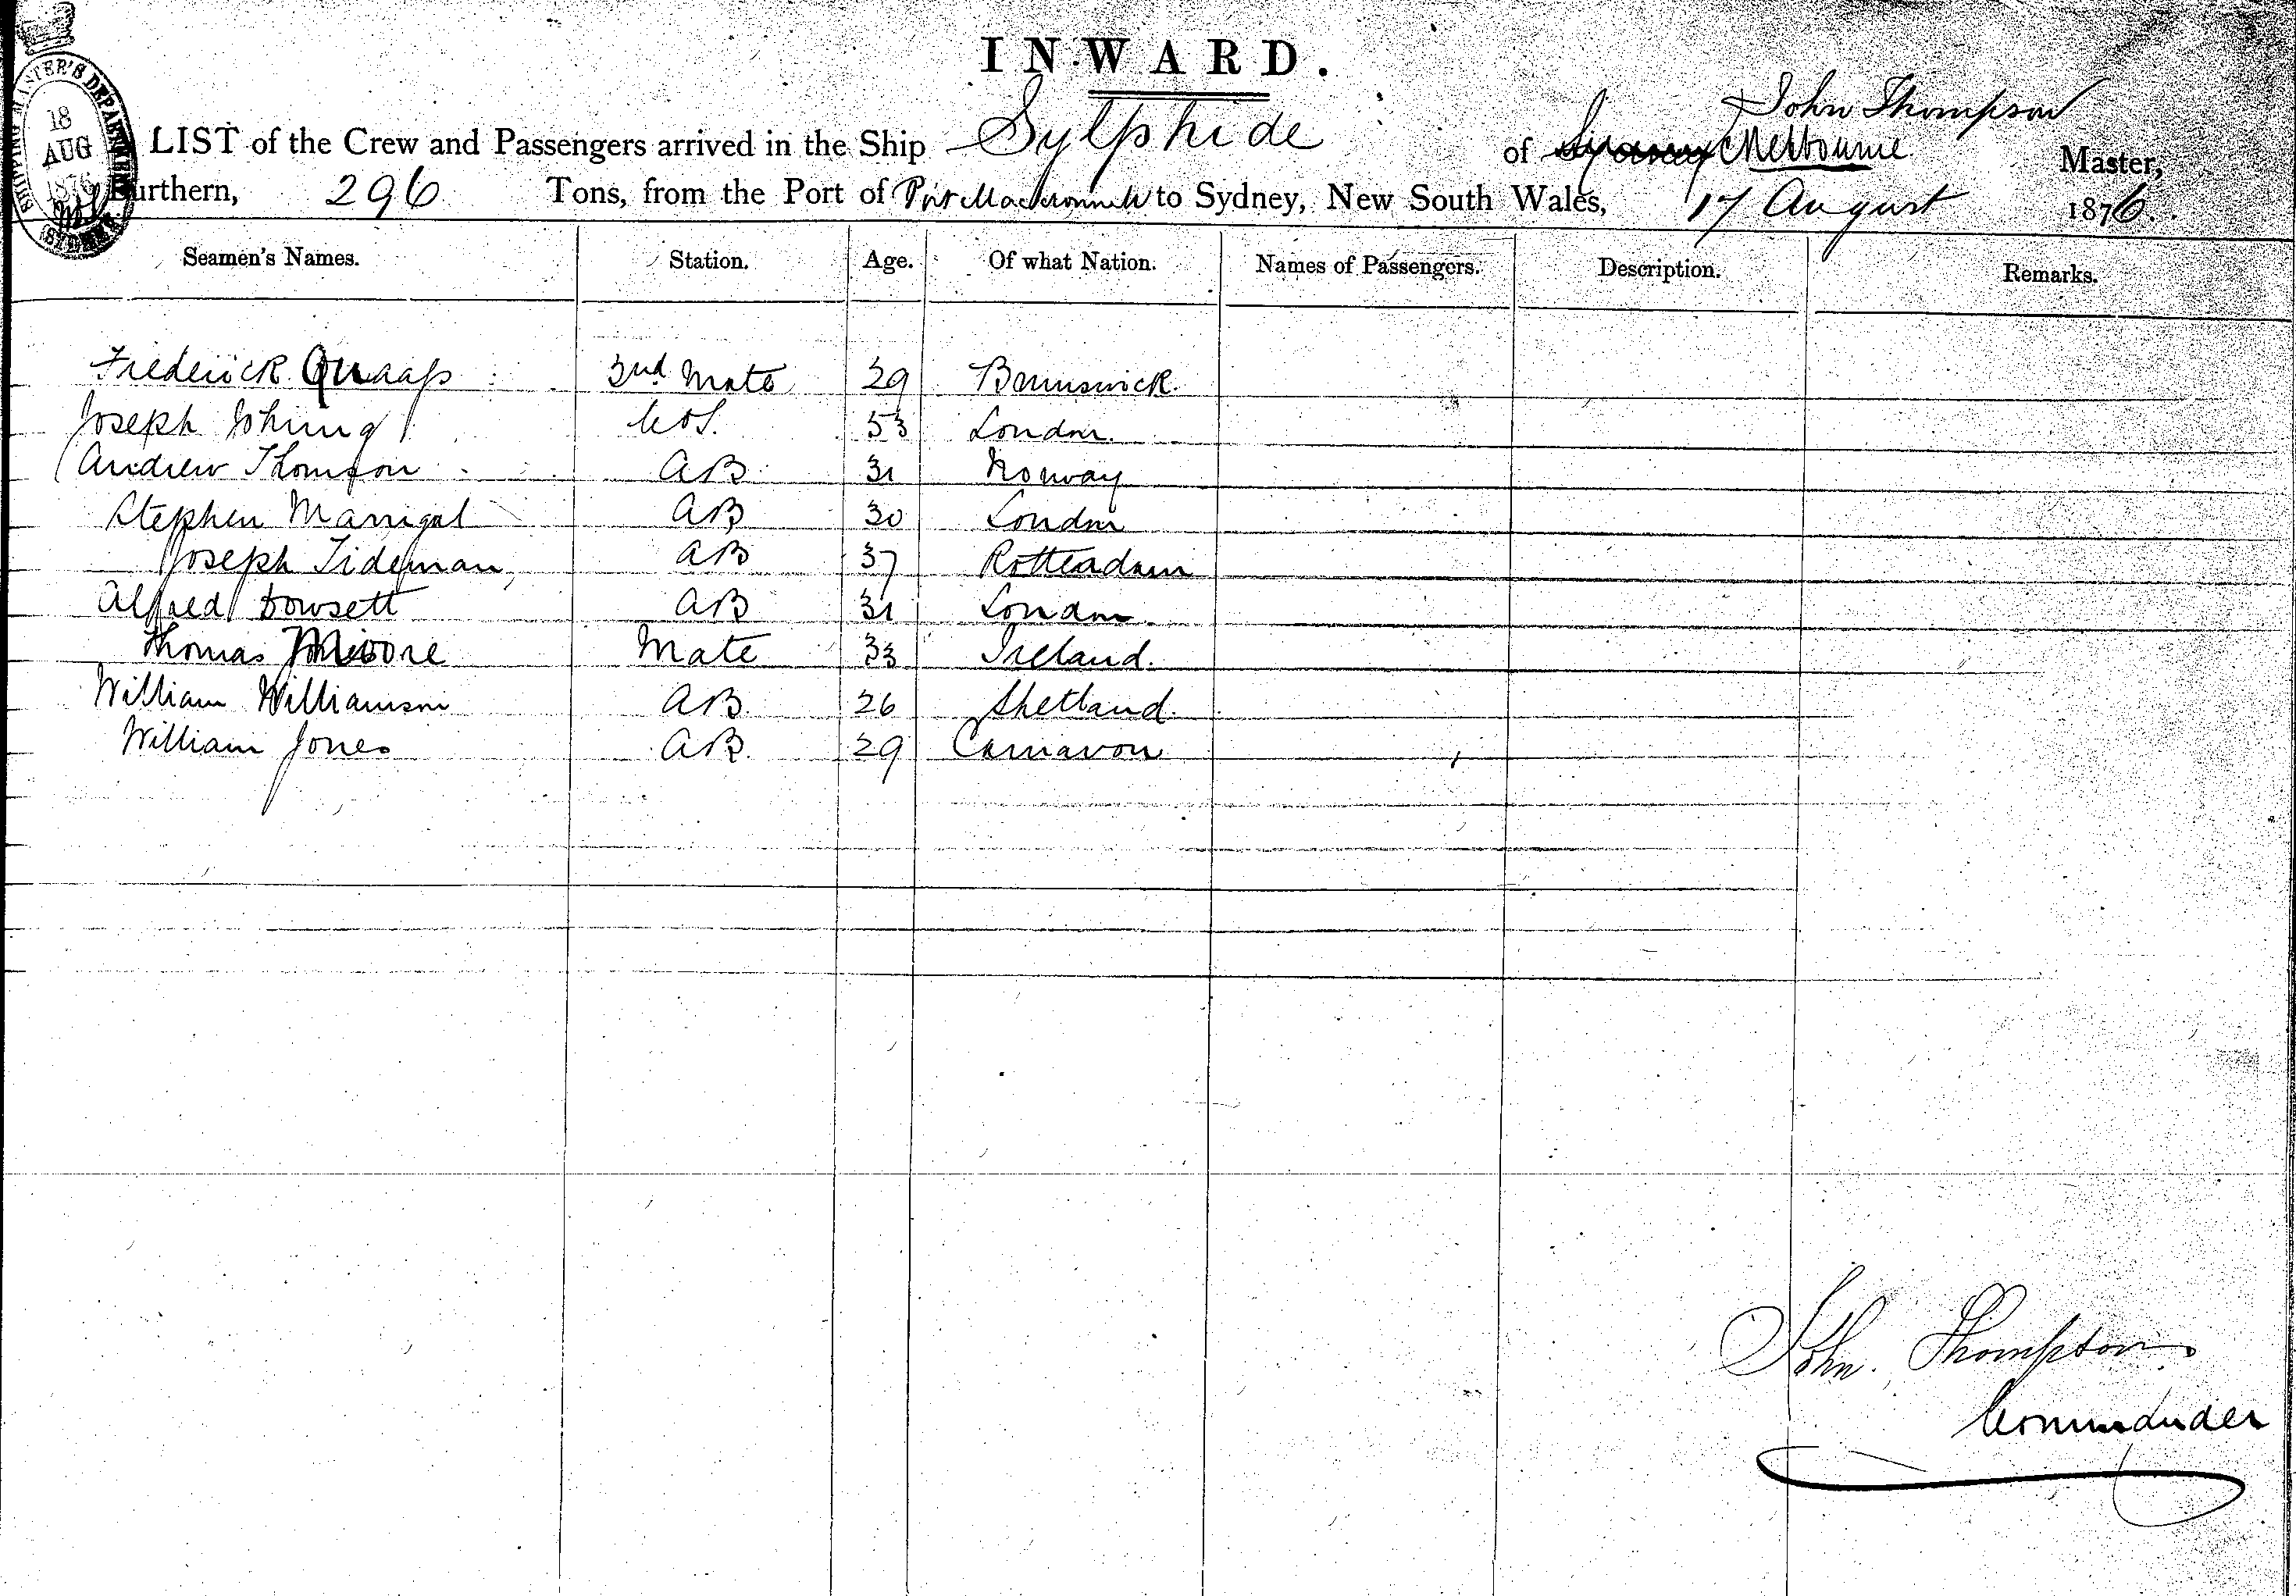 INWARD.
SHIPPING MASTER'S DEPARTMENT
18
AUG
1876
SYDNEY
John Thompson
LIST of the Crew and Passengers arrived in the Ship Sylphide of Melbourne Master,
Burthern, 296 Tons, from the Port of Port Macdonnell to Sydney, New South Wales, 17 August 1876.
Seamen's Names. Station. Age. Of what Nation. Names of Passengers. Description. Remarks.
Frederick Quaass 2nd Mate 29 Brunswick
Joseph C&S. 53 London
Andrew Thomson AB 31 Norway
Stephen Marrigal AB 30 London
Joseph Tideman, AB 37 Rotterdam
Alfred Dowsett AB 31 London
Thomas Moore Mate 33 Ireland.
William Williamson AB 26 Shetland.
William Jones AB. 29 Carnavon
John Thompson
Commander